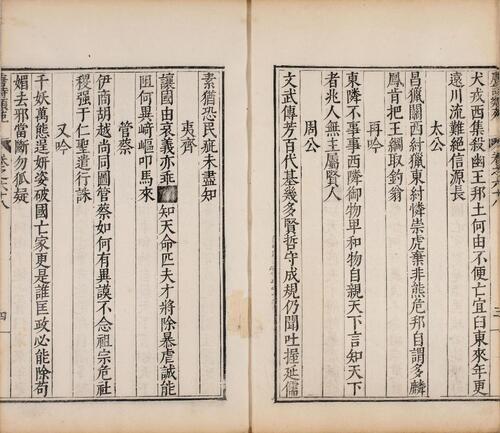 犬戎西集殺幽王邦土何由不便亡宜臼東來年更
遠川流難絕信源長
太公
昌獵關西紂獵東紂憐崇虎棄非熊危邦自謂多麟
鳳肯把王綱取釣翁
再吟
東隣不事事西隣御物卑和物自親天下言知天下
者兆人無主屬賢人
周公
文武傳芳百代基幾多賢哲守成規仍聞吐握延儒
素猶恐民疵未盡知
夷齊
讓國由衷義亦乖知天命匹夫才將除暴虐誠能
阻何異崎嶇叩馬來
管蔡
伊商胡越尚同圖管蔡如何有異謨不念祖宗危社
稷强于仁聖遣行誅
又吟
千妖萬態逞妍姿破國亡家更是誰匡政必能除苟
媚去邪當斷勿狐疑
四